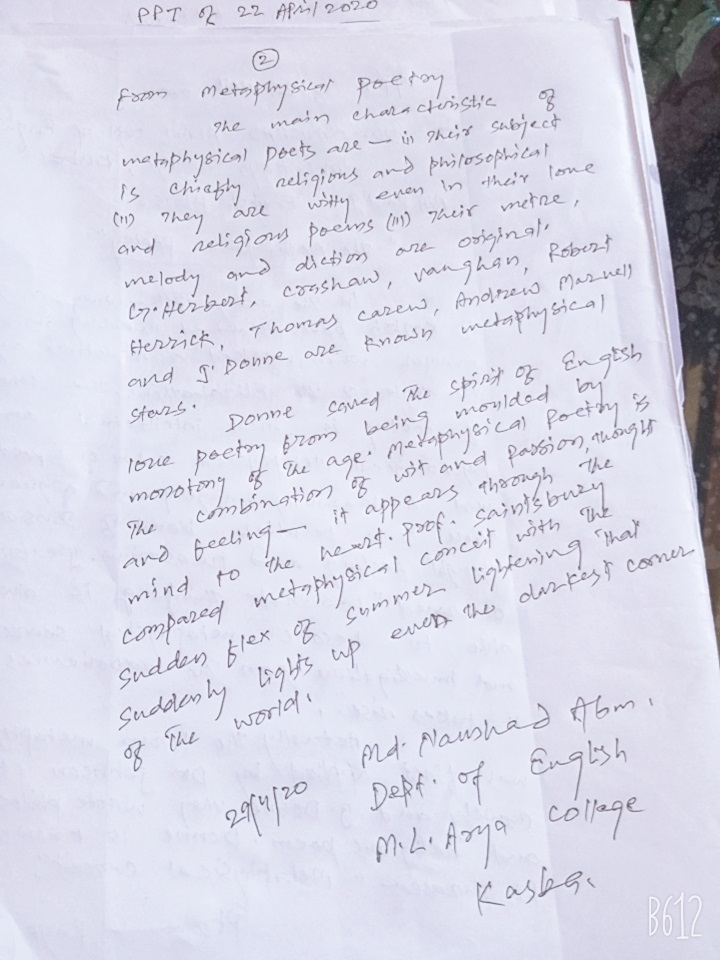 PPT of 22 April 2020
2
from metaphysical poetry
The main characteristic of
metaphysical poets are — (i) Their subject
is chiefly religions and philosophical
(ii) They are witty even in their love
and religions poems (iii) Their metre,
melody and diction are original.
G. Herbert, crashaw, vaughan, Robert
Herrick, Thomas carew, Andrew Marwell
and J. Donne are known metaphysical
stars.
Donne saved The spirit of English
love poetry from being moulded by
monotony of The age. Metaphysical Poetry is
The combination of wit and passion, thought
and feeling — it appears through The
mind to The heart. Prof. Saintsbury
compared metaphysical conceit with The
sudden flex of summer lightening That
suddenly lights up even The darkest corner
of The world.
Md. Naushad Abm.
29/4/20
Dept. of English
M.L. Arya College
Kasba.
B612